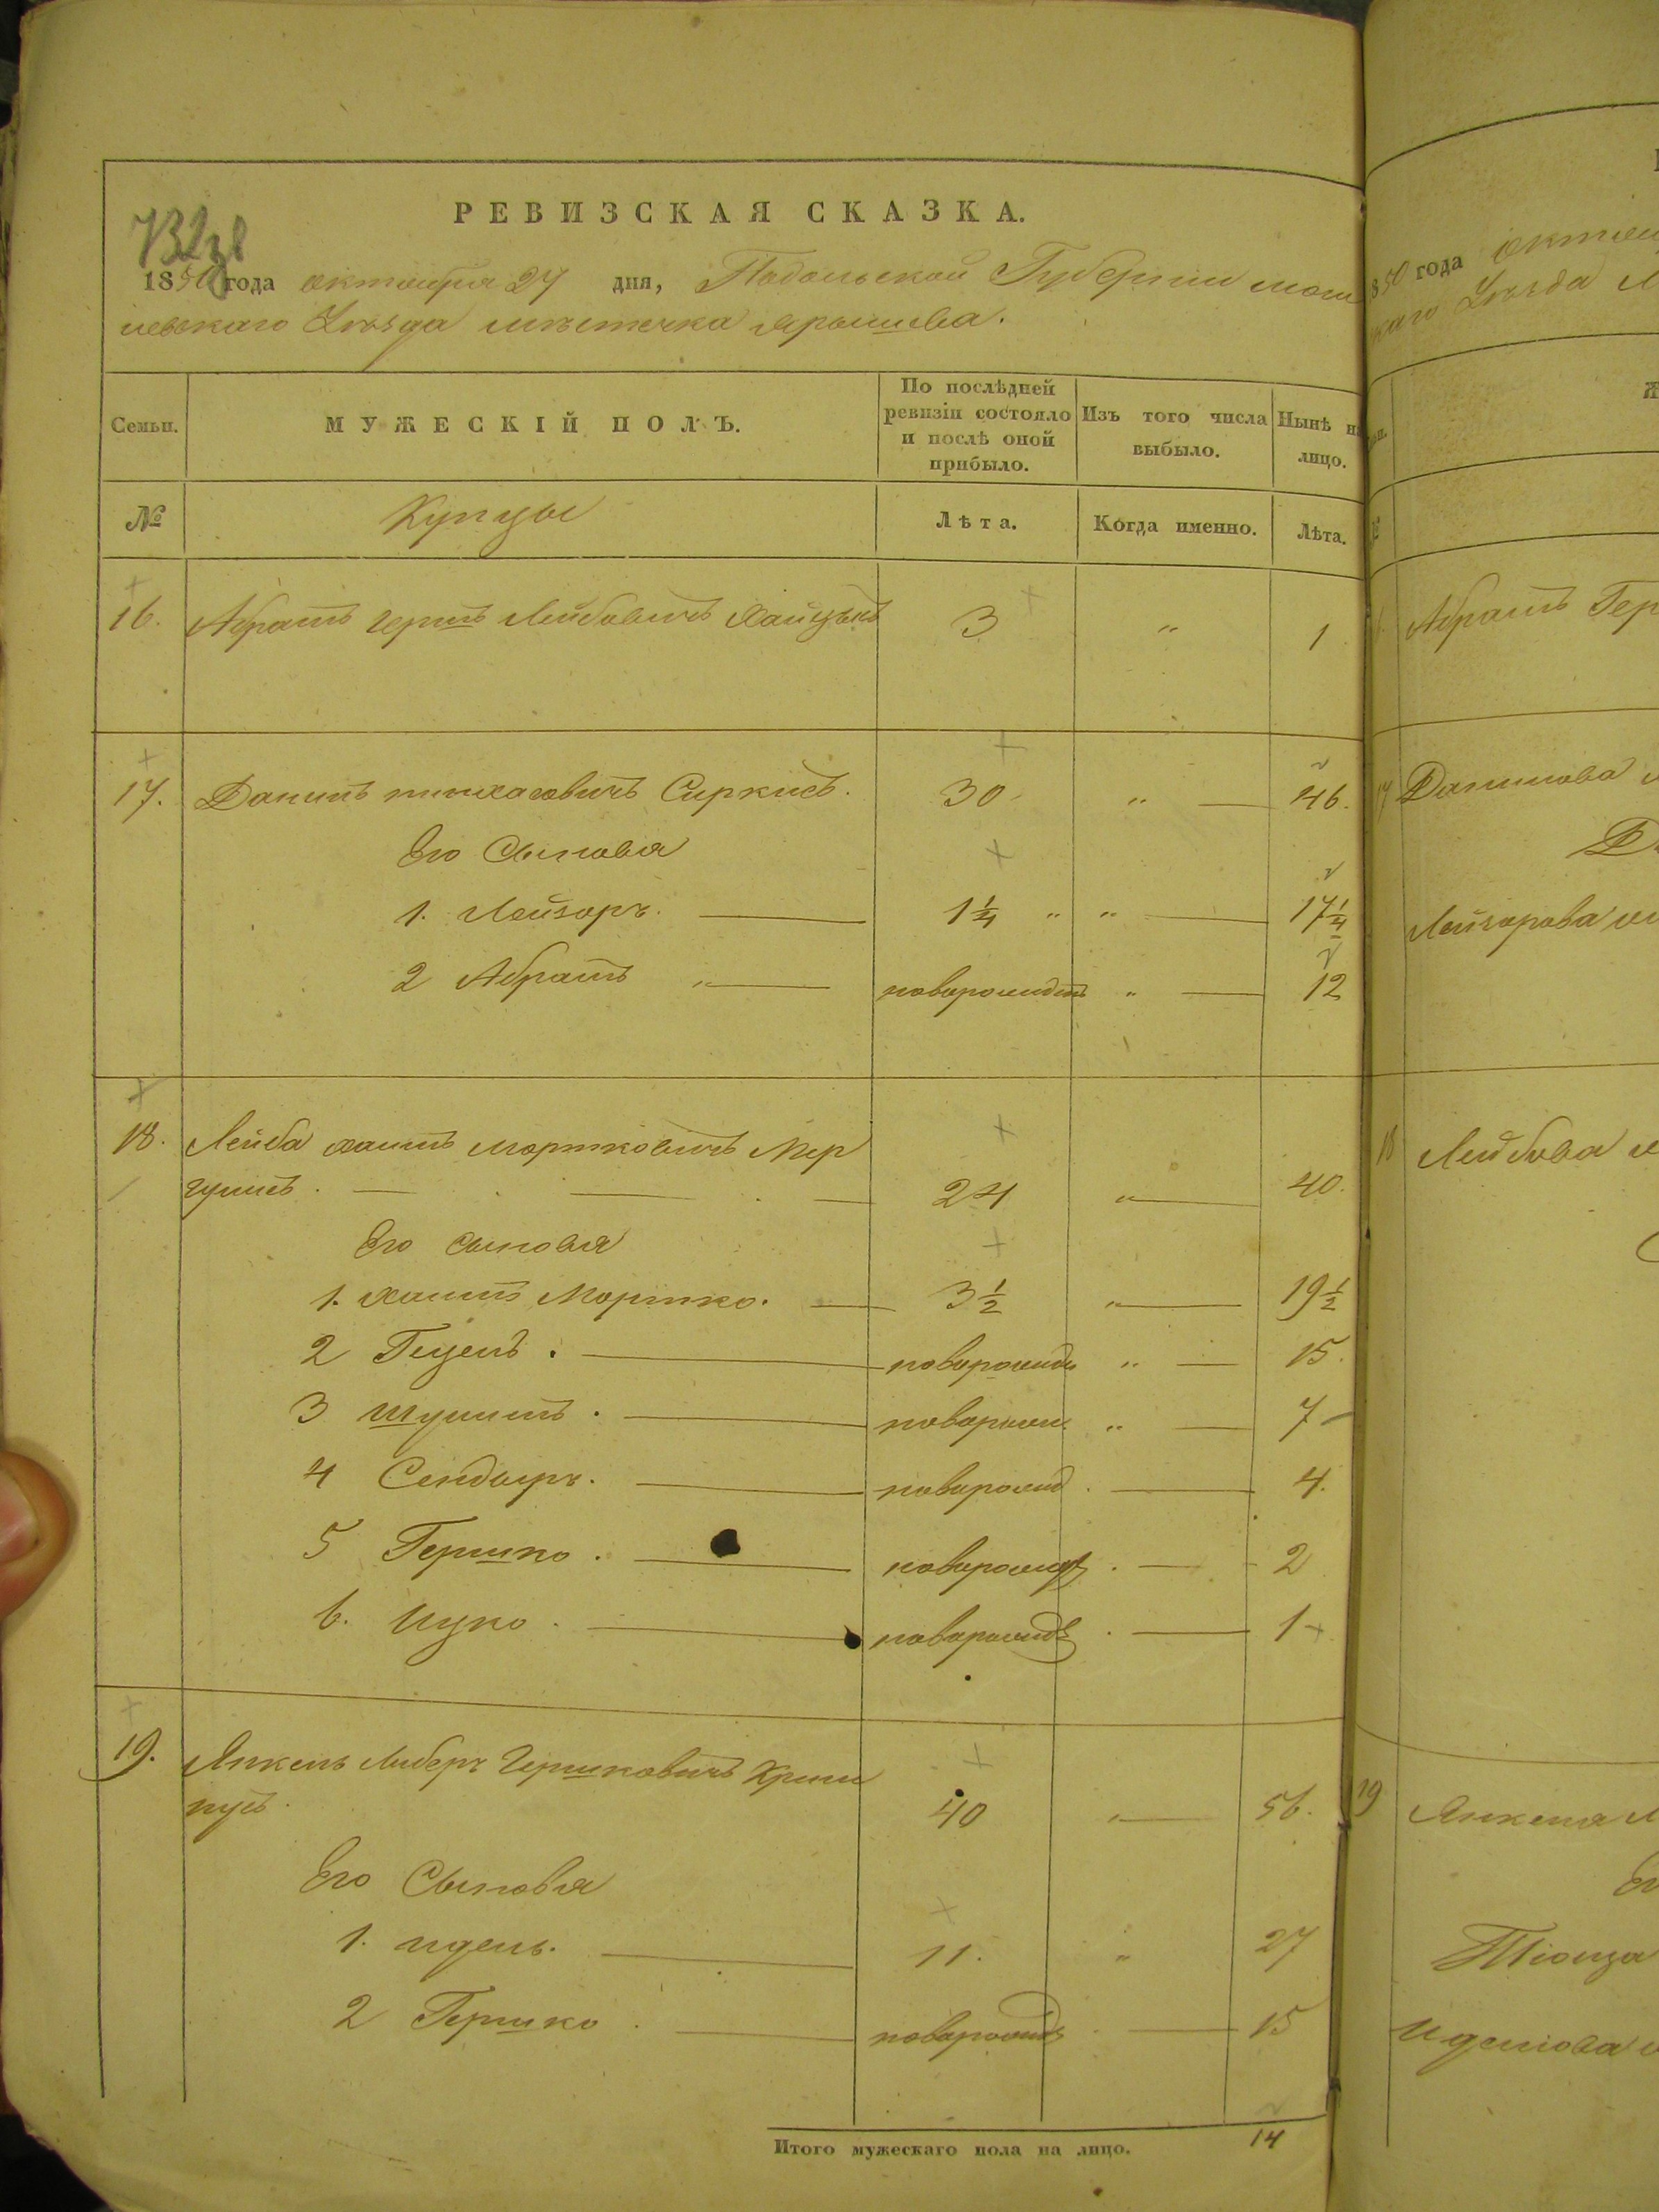 РЕВИЗСКАЯ СКАЗКА.
1850 года октября 27 дня, Подольской Губернии моги
левскаго Уѣзда мѣстечка Ярышева.
Семьи.
МУЖЕСКІЙ ПОЛЪ.
По послѣдней ревизіи состояло и послѣ оной прибыло.
Изъ того числа выбыло.
Нынѣ на лицо.
№
Купцы
Лѣта.
Когда именно.
Лѣта.
16. Абрамъ Гершъ Лейбовичъ 3 " 1
17. Данилъ пинхасовичъ Сиркисъ. 30 " 46.
Его Сыновья
1. Лейзоръ. 1 1/4 " " 17 1/4
2 Абрамъ " новорожденъ " 12
18. Лейба хаимъ моршковичъ Мер
гулисъ. 24 " 40.
Его сыновья
1. хаимъ Моршко. 3 1/2 " 19 1/2
2 Гецель. новорожд " 15.
3 шулимъ. новорож. " 7
4 Сендыръ. новорожд 4.
5 Гершко. новорожд 2
6. Ицко. новорожд 1
19. Янкель Либеръ Гершковичъ
40 " 56.
Его Сыновья
1. идель. 11. " 27
2 Гершко. новорожд 15
Итого мужескаго пола на лицо. 14
850 года октяб
каго Уѣзда
Абрамъ Гер
17 Данилова
Лейзорова
18 Лейбова
19 Янкеля
Иделева